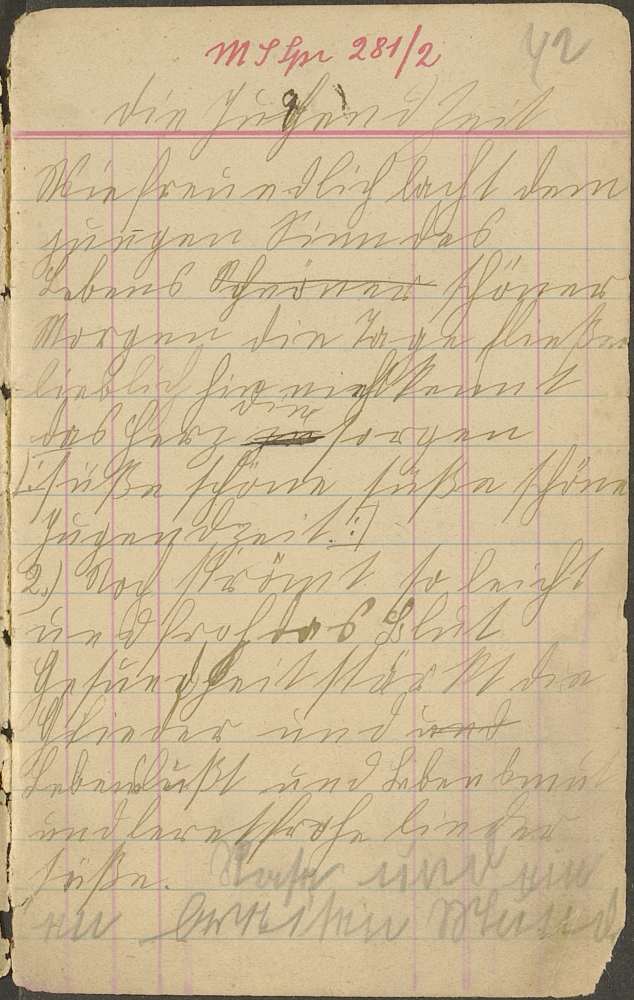 M S Spr 281/2
42
die Jugend Zeit
Wie freuendlich lacht dem
jungen Sinn des
Lebens Schöner schöner
Morgen die Tage fließen
lieblich hin nicht kennt
die
das Herz sorgen
/: süße schöne süße schöne
Jugendzeit. :/
2.) Noch strömt so leicht
und froh das Blut
Gesundheit stärkt die
Glieder und und
Lebenslußt und Lebensmut
und lernt frohe lieder
süße. und